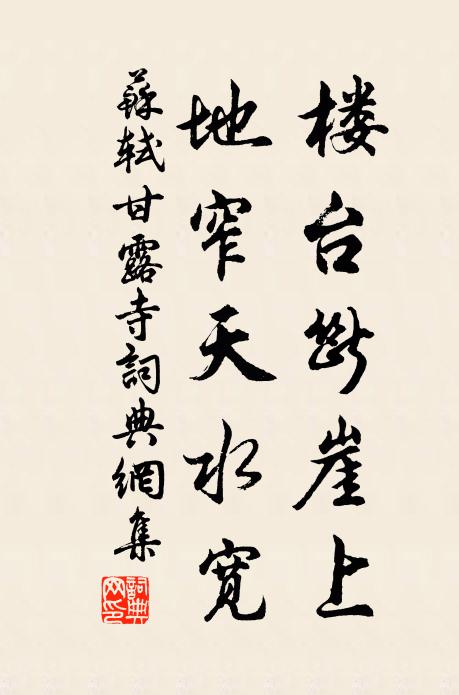 楼台断崖上
地窄天水宽
蘇軾甘露寺詞典網集
詞典
网印